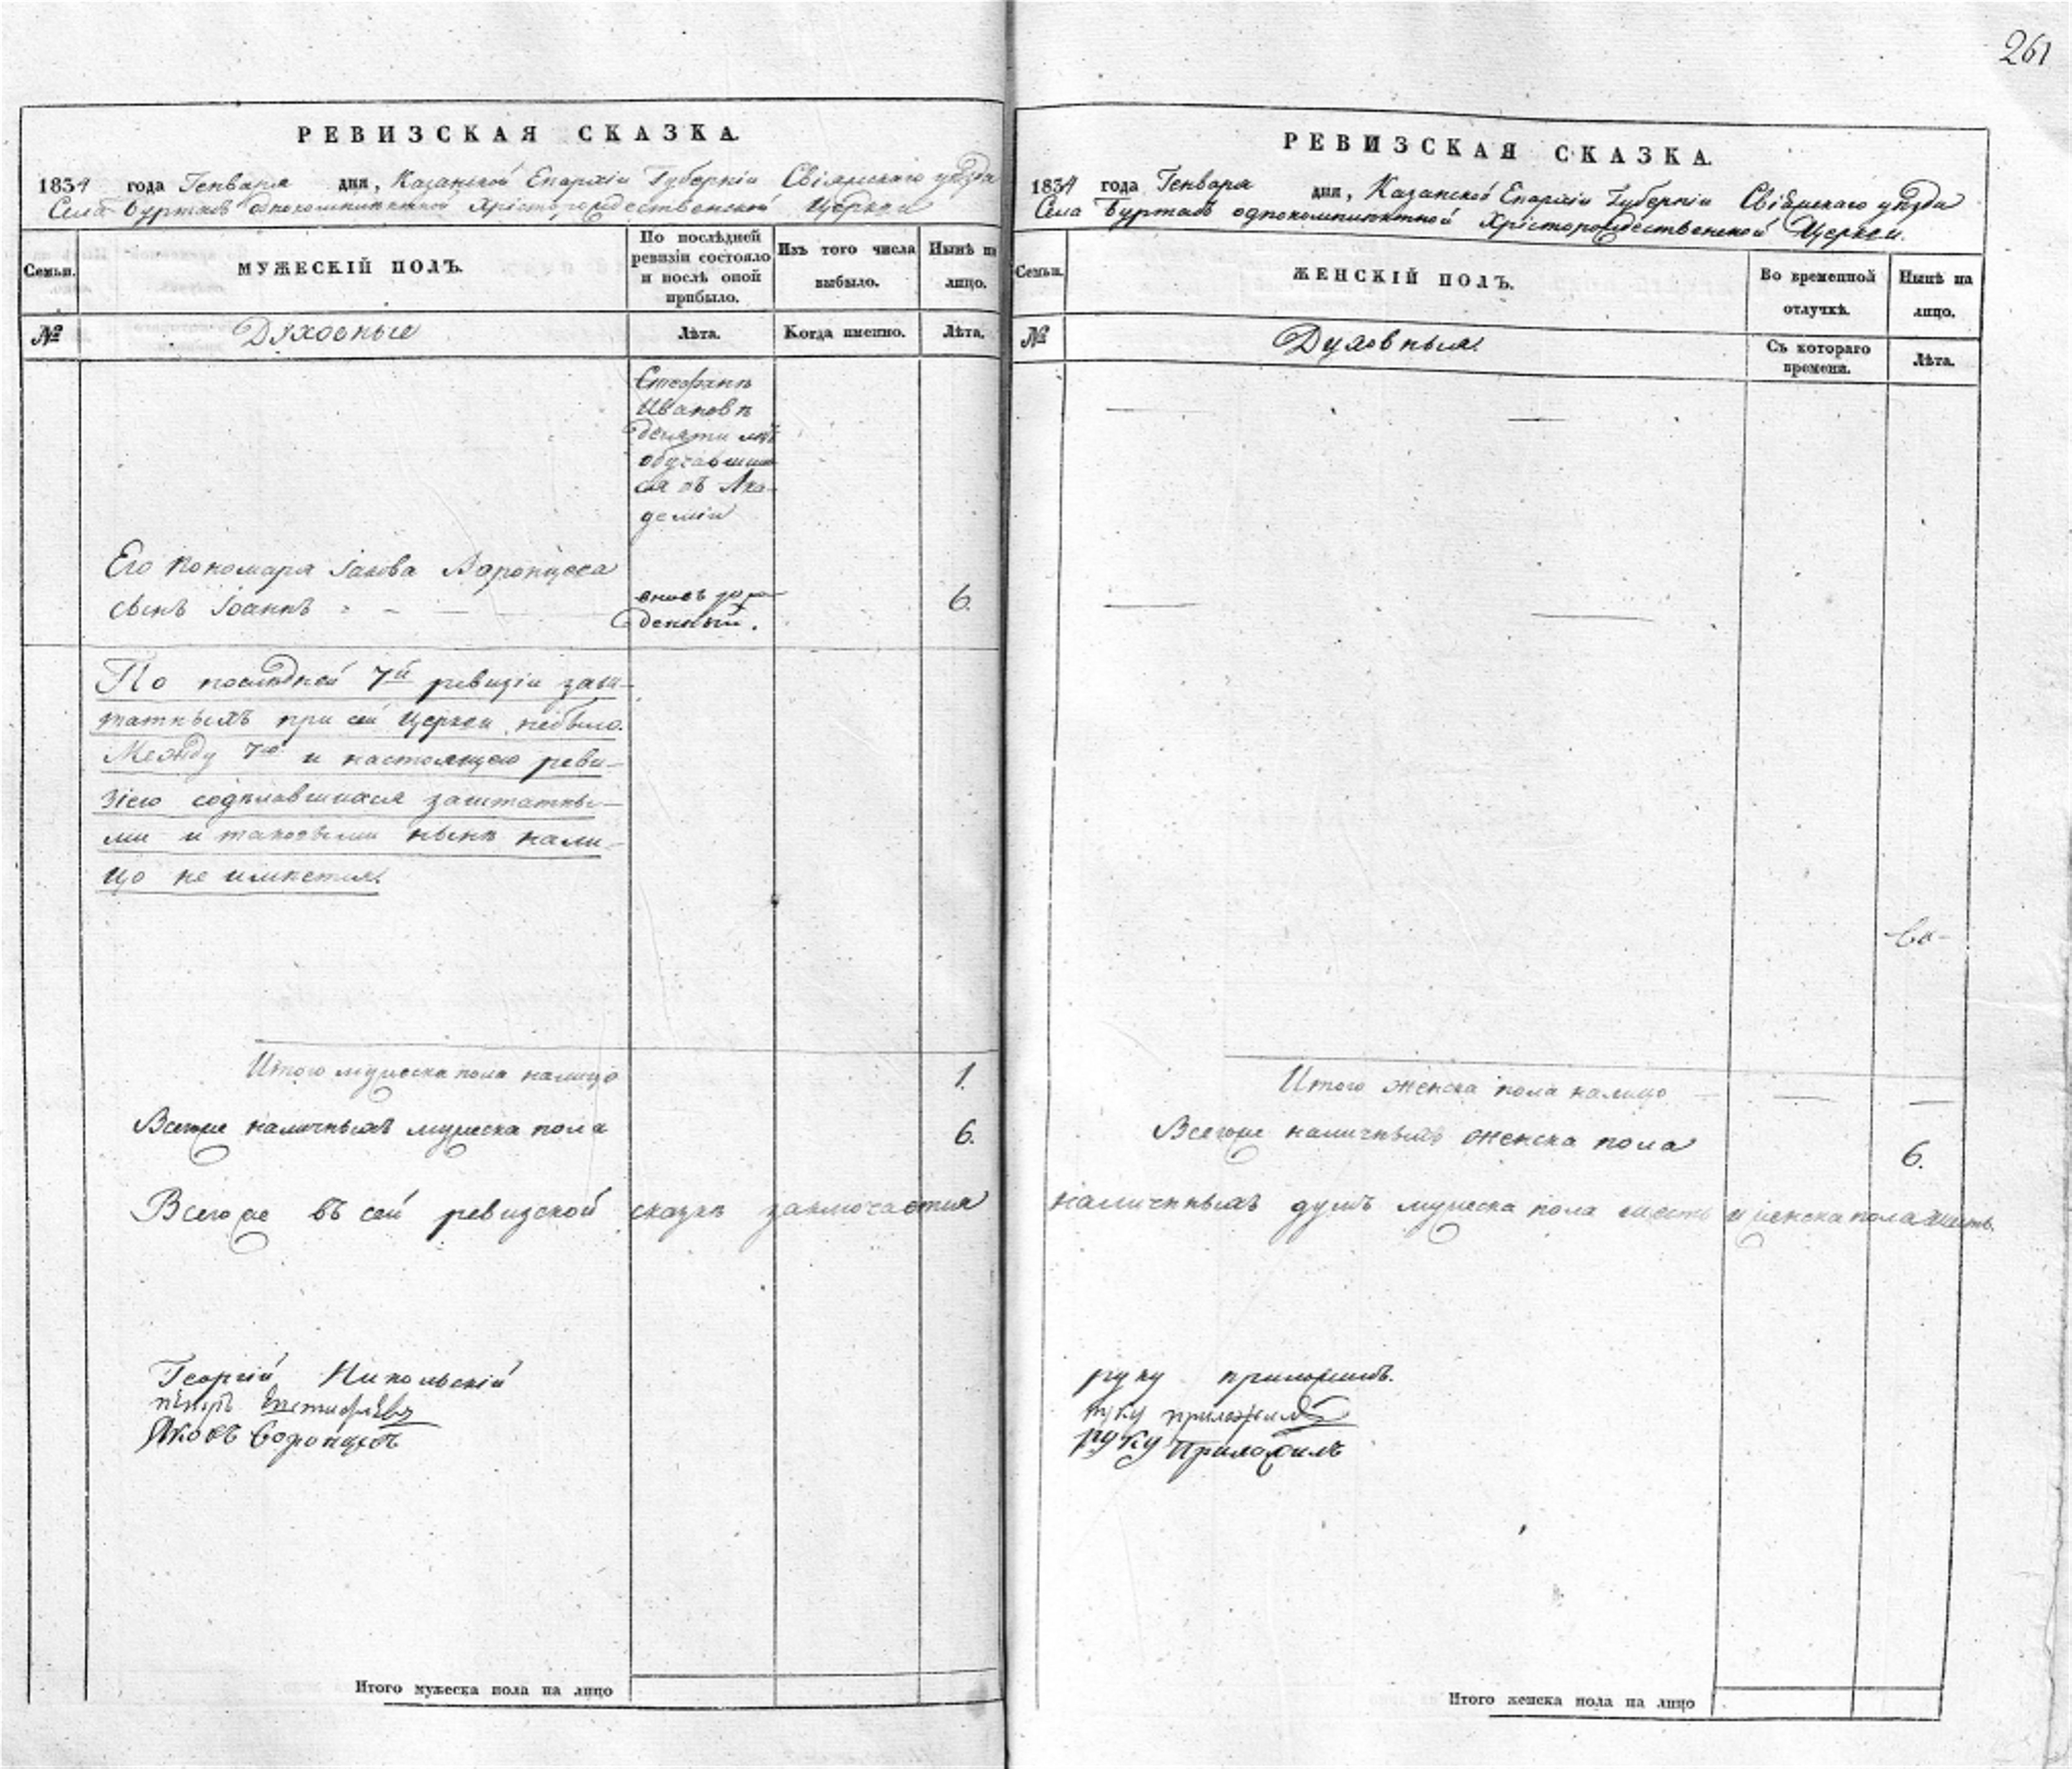 261
РЕВИЗСКАЯ СКАЗКА.
1834 года Генваря дня, Казанской Епархіи Губерніи Свіяжскаго уѣзда
Села Буртасъ однокомплектной Христорождественской Церкви
Семьи.
МУЖЕСКІЙ ПОЛЪ.
По послѣдней ревизіи состояло и послѣ оной прибыло.
Изъ того числа выбыло.
Нынѣ на лицо.
№
Духовные
Лѣта.
Когда именно.
Лѣта.
Стефанъ
Ивановъ
девяти лѣтъ
обучавший
ся въ Ака-
деміи
Его Пономаря Іакова Воронцова
сынъ Іоаннъ
вновь рож-
денный.
6.
По послѣдней 7й ревизіи заш-
татныхъ при сей Церкви небыло.
Между 7ю и настоящею реви-
зіею содѣлавшихся заштатны-
ми и таковыми нынѣ нали-
цо не имѣется.
Итого мужеска пола налицо 1.
Всегоже наличныхъ мужеска пола 6.
Всегоже въ сей ревизской сказкѣ заключается
Георгій Никольскій
Петръ Евстифѣевъ
Яковъ Воронцовъ
Итого мужеска пола на лицо
РЕВИЗСКАЯ СКАЗКА.
1834 года Генваря дня, Казанской Епархіи Губерніи Свіяжскаго уѣзда
Села Буртасъ однокомплектной Христорождественской Церкви.
Семьи.
ЖЕНСКІЙ ПОЛЪ.
Во временной отлучкѣ.
Нынѣ на лицо.
№
Духовныя.
Съ котораго времени.
Лѣта.
Итого женска пола налицо
Всегоже наличныхъ женска пола 6.
наличныхъ душъ мужеска пола шесть и женска пола шесть.
руку приложилъ.
руку приложилъ
руку приложилъ
Итого женска пола на лицо